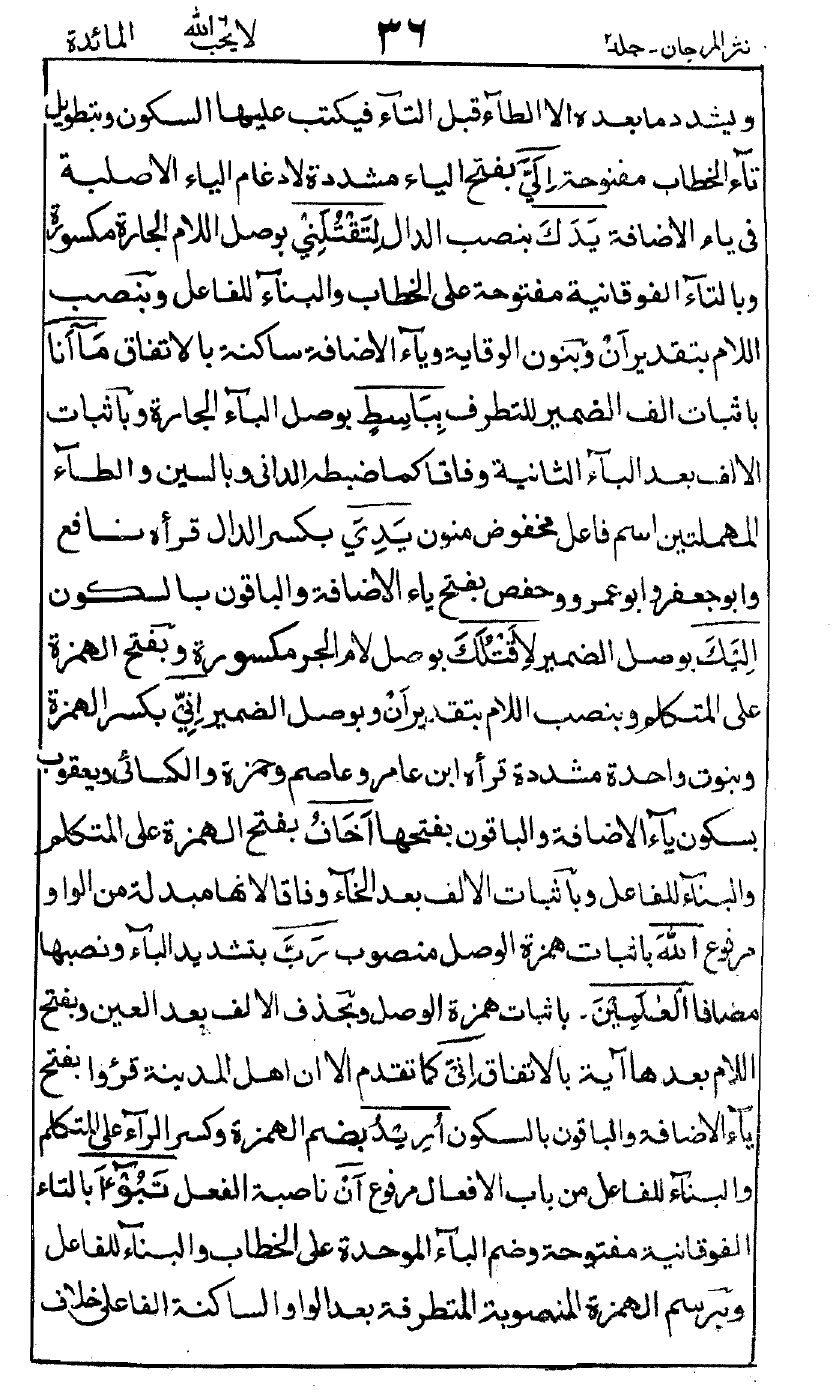 نثر المرجان - جلد ٢ ٣٦ لا يحب الله ٦ المائدة
ويشدد ما بعده الا الطآء قبل التآء فيكتب عليها السكون وبتطويل
تآء الخطاب مفتوحة اِلَيَّ بفتح الياء مشددة لادغام الياء الاصلية
فى ياء الاضافة يَدَكَ بنصب الدال لِتَقْتُلَنِيْ بوصل اللام الجارة مكسورة
وبالتآء الفوقانية مفتوحة على الخطاب والبنآء للفاعل وبنصب
اللام بتقدير اَنْ وبنون الوقاية ويآء الاضافة ساكنة بالاتفاق مَآ اَنَا
باثبات الف الضمير للتطرف بِبَاسِطٍ بوصل البآء الجارة وباثبات
الالف بعد البآء الثانية وفاقا كما ضبطه الدانى وبالسين والطآء
المهملتين اسم فاعل مخفوض منون يَدِيَ بكسر الدال قرأه نافع
وابو جعفر وابو عمرو وحفص بفتح ياء الاضافة والباقون بالسكون
اِلَيْكَ بوصل الضمير لِاَقْتُلَكَ بوصل لام الجر مكسورة وبفتح الهمزة
على المتكلم وبنصب اللام بتقدير اَنْ وبوصل الضمير اِنِّيْ بكسر الهمزة
وبنون واحدة مشددة قرأه ابن عامر وعاصم وحمزة والكسائى ويعقوب
بسكون يآء الاضافة والباقون بفتحها اَخَافُ بفتح الهمزة على المتكلم
والبنآء للفاعل وباثبات الالف بعد الخآء وفاقا لانها مبدلة من الواو
مرفوع اللّٰهَ باثبات همزة الوصل منصوب رَبَّ بتشديد البآء ونصبها
مضافا الْعٰلَمِيْنَ - باثبات همزة الوصل وبحذف الالف بعد العين وبفتح
اللام بعدها آية بالاتفاق اِنِّيْ كما تقدم الا ان اهل المدينة قرؤا بفتح
يآء الاضافة والباقون بالسكون اُرِيْدُ بضم الهمزة وكسر الرآء على المتكلم
والبنآء للفاعل من باب الافعال مرفوع اَنْ ناصبة الفعل تَبُوْٓءَا بالتاء
الفوقانية مفتوحة وضم البآء الموحدة على الخطاب والبنآء للفاعل
وبرسم الهمزة المنصوبة المتطرفة بعد الواو الساكنة الفا على خلاف